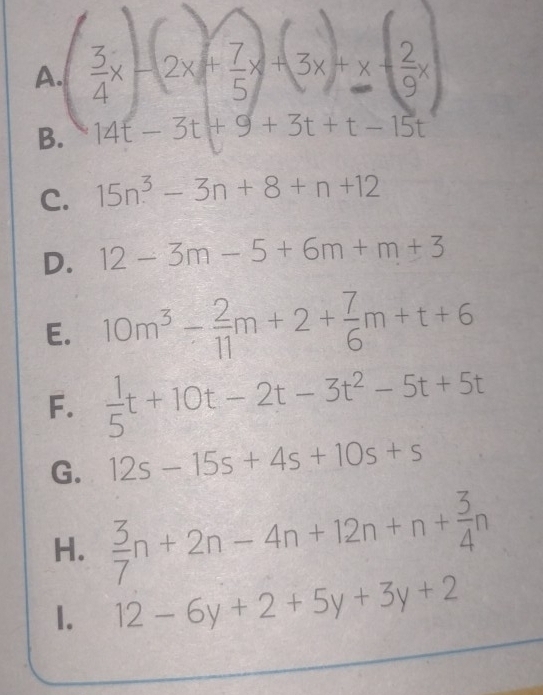 A. 3/4x − 2x + 7/5x + 3x + x − 2/9x
B. 14t − 3t + 9 + 3t + t − 15t
C. 15n³ − 3n + 8 + n +12
D. 12 − 3m − 5 + 6m + m + 3
E. 10m³ − 2/11m + 2 + 7/6m + t + 6
F. 1/5t + 10t − 2t − 3t² − 5t + 5t
G. 12s − 15s + 4s + 10s + s
H. 3/7n + 2n − 4n + 12n + n + 3/4n
I. 12 − 6y + 2 + 5y + 3y + 2